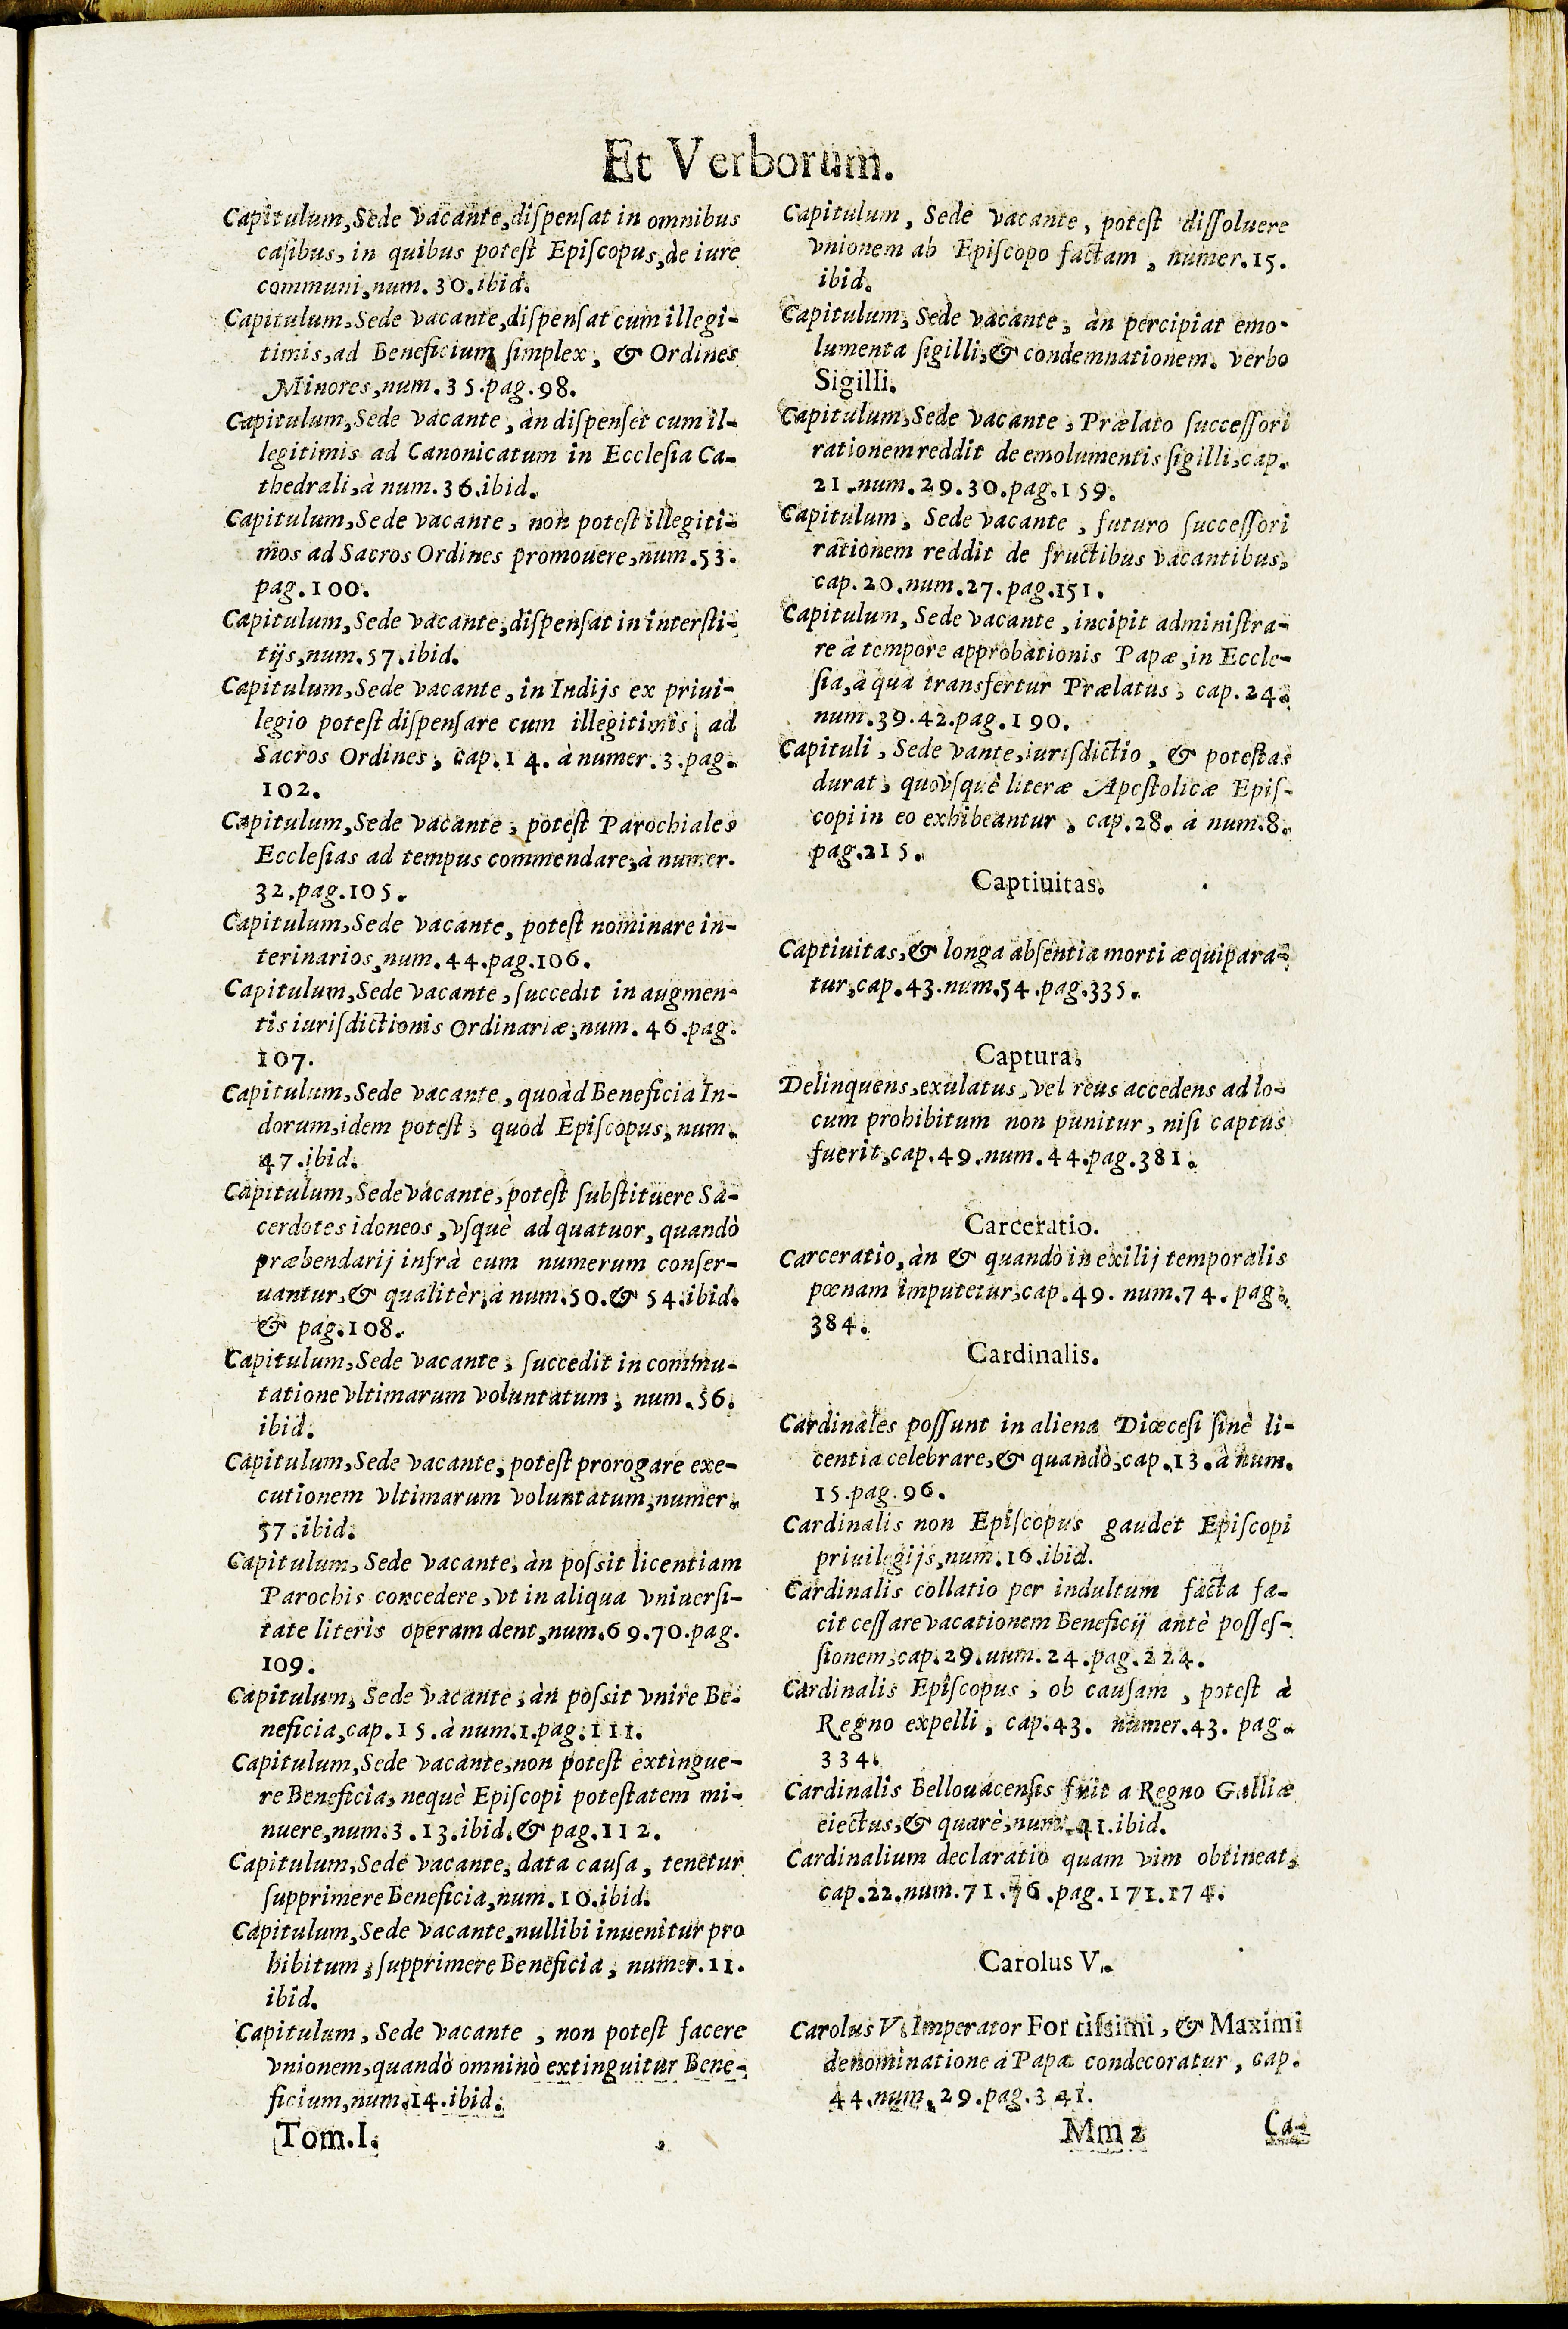 Et Verborum.
Capitulum, Sede vacante, dispensat in omnibus
casibus, in quibus potest Episcopus, de iure
communi, num. 30. ibid.
Capitulum, Sede vacante, dispensat cum illegi-
timis, ad Beneficium simplex, & Ordines
Minores, num. 35. pag. 98.
Capitulum, Sede vacante, àn dispenset cum il-
legitimis ad Canonicatum in Ecclesia Ca-
thedrali, à num. 36. ibid.
Capitulum, Sede vacante, non potest illegiti-
mos ad Sacros Ordines promouere, num. 53.
pag. 100.
Capitulum, Sede vacante, dispensat in intersti-
tijs, num. 57. ibid.
Capitulum, Sede vacante, in Indijs ex priui-
legio potest dispensare cum illegitimis, ad
Sacros Ordines, cap. 14. à numer. 3. pag.
102.
Capitulum, Sede vacante, potest Parochiales
Ecclesias ad tempus commendare, à numer.
32. pag. 105.
Capitulum, Sede vacante, potest nominare in-
terinarios, num. 44. pag. 106.
Capitulum, Sede vacante, succedit in augmen-
tis iurisdictionis Ordinariæ, num. 46. pag.
107.
Capitulum, Sede vacante, quoàd Beneficia In-
dorum, idem potest, quòd Episcopus, num.
47. ibid.
Capitulum, Sede vacante, potest substituere Sa-
cerdotes idoneos, vsquè ad quatuor, quandò
præbendarij infrà eum numerum conser-
uantur, & qualitèr, à num. 50. & 54. ibid.
& pag. 108.
Capitulum, Sede vacante, succedit in commu-
tatione vltimarum voluntatum, num. 56.
ibid.
Capitulum, Sede vacante, potest prorogare exe-
cutionem vltimarum voluntatum, numer.
57. ibid.
Capitulum, Sede vacante, àn possit licentiam
Parochis concedere, vt in aliqua vniuersi-
tate literis operam dent, num. 69. 70. pag.
109.
Capitulum, Sede vacante, àn possit vnire Be-
neficia, cap. 15. à num. 1. pag. 111.
Capitulum, Sede vacante, non potest extingue-
re Beneficia, nequè Episcopi potestatem mi-
nuere, num. 3. 13. ibid. & pag. 112.
Capitulum, Sede vacante, data causa, tenetur
supprimere Beneficia, num. 10. ibid.
Capitulum, Sede vacante, nullibi inuenitur pro
hibitum, supprimere Beneficia, numer. 11.
ibid.
Capitulum, Sede vacante, non potest facere
vnionem, quandò omninò extinguitur Bene-
ficium, num. 14. ibid.
Tom. I.
Capitulum, Sede vacante, potest dissoluere
vnionem ab Episcopo factam, numer. 15.
ibid.
Capitulum, Sede vacante, àn percipiat emo-
lumenta sigilli, & condemnationem. verbo
Sigilli.
Capitulum, Sede vacante, Prælato successori
rationem reddit de emolumentis sigilli, cap.
21. num. 29. 30. pag. 159.
Capitulum, Sede vacante, futuro successori
rationem reddit de fructibus vacantibus,
cap. 20. num. 27. pag. 151.
Capitulum, Sede vacante, incipit administra-
re à tempore approbationis Papæ, in Eccle-
sia, à qua transfertur Prælatus, cap. 24.
num. 39. 42. pag. 190.
Capituli, Sede vante, iurisdictio, & potestas
durat, quovsquè literæ Apostolicæ Epis-
copi in eo exhibeantur, cap. 28. à num. 8.
pag. 215.
Captiuitas.
Captiuitas, & longa absentia morti æquipara-
tur, cap. 43. num. 54. pag. 335.
Captura.
Delinquens, exulatus, vel reus accedens ad lo-
cum prohibitum non punitur, nisi captus
fuerit, cap. 49. num. 44. pag. 381.
Carceratio.
Carceratio, àn & quandò in exilij temporalis
pœnam imputetur, cap. 49. num. 74. pag.
384.
Cardinalis.
Cardinales possunt in aliena Diœcesi sinè li-
centia celebrare, & quandò, cap. 13. à num.
15. pag. 96.
Cardinalis non Episcopus gaudet Episcopi
priuilegijs, num. 16. ibid.
Cardinalis collatio per indultum facta fa-
cit cessare vacationem Beneficij antè posses-
sionem, cap. 29. uum. 24. pag. 224.
Cardinalis Episcopus, ob causam, potest à
Regno expelli, cap. 43. numer. 43. pag.
334.
Cardinalis Bellouacensis fuit a Regno Galliæ
eiectus, & quarè, num. 41. ibid.
Cardinalium declaratio quam vim obtineat,
cap. 22. num. 71. 76. pag. 171. 174.
Carolus V.
Carolus V. Imperator Fortissimi, & Maximi
denominatione à Papa condecoratur, cap.
44. num. 29. pag. 341.
Mm 2
Ca-